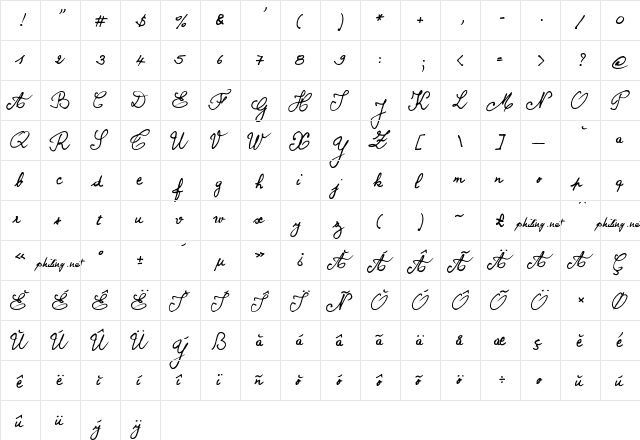 ! " # $ % & ' ( ) * + , - . / 0
1 2 3 4 5 6 7 8 9 : ; < = > ? @
A B C D E F G H I J K L M N O P
Q R S T U V W X Y Z [ \ ] _ ` a
b c d e f g h i j k l m n o p q
r s t u v w x y z ( ) ~ £ philing.net ¨ philing.net
« philing.net ° ± ´ µ » ¿ À Á Â Ã Ä Å Æ Ç
È É Ê Ë Ì Í Î Ï Ñ Ò Ó Ô Õ Ö × Ø
Ù Ú Û Ü Ý ß à á â ã ä å æ ç è é
ê ë ì í î ï ñ ò ó ô õ ö ÷ ø ù ú
û ü ý ÿ